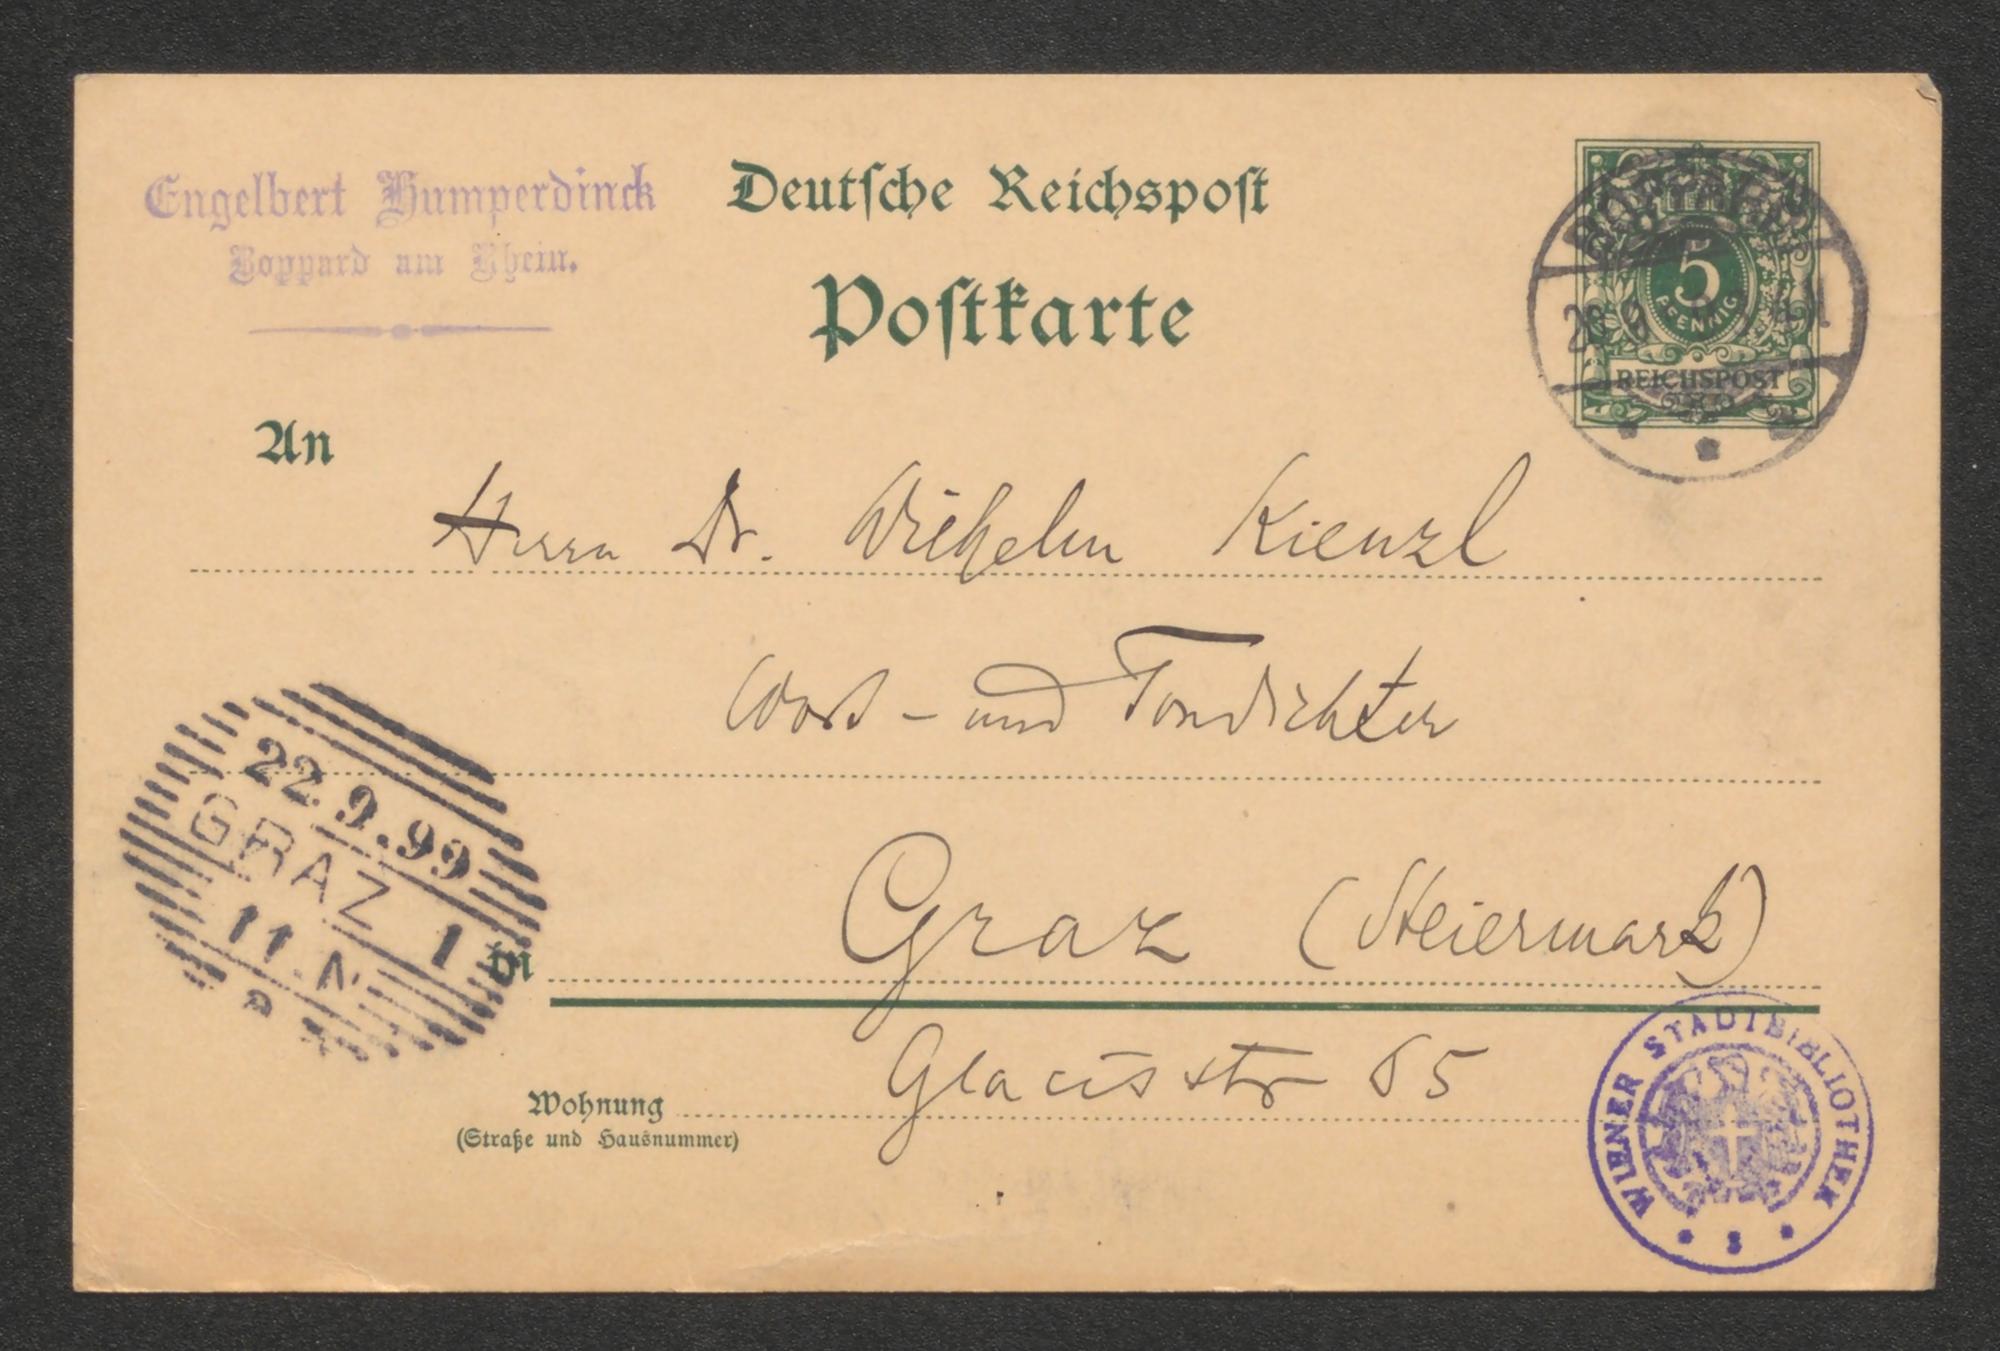 Engelbert Humperdinck
Boppard am Rhein.
Deutſche Reichspoſt
Poſtkarte
BOPPARD
5
PFENNIG
REICHSPOST
An
Herrn Dr. Wilhelm Kienzl
Wort- und Tondichter
22.9.99
GRAZ 1
11.N
in Graz (Steiermark)
Glacisstr 65
Wohnung
(Straße und Hausnummer)
WIENER STADTBIBLIOTHEK